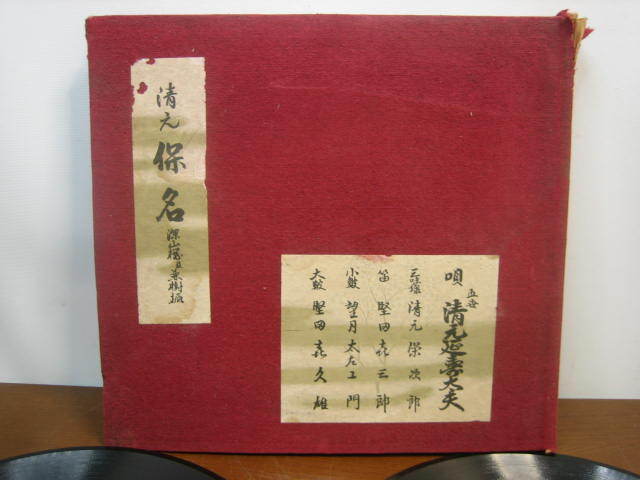 清元
保名
深山桜及兼樹振
唄 五世 清元延寿太夫
三味線 清元保次郎
笛 堅田喜三郎
小鼓 望月太左エ門
大鼓 堅田喜久雄